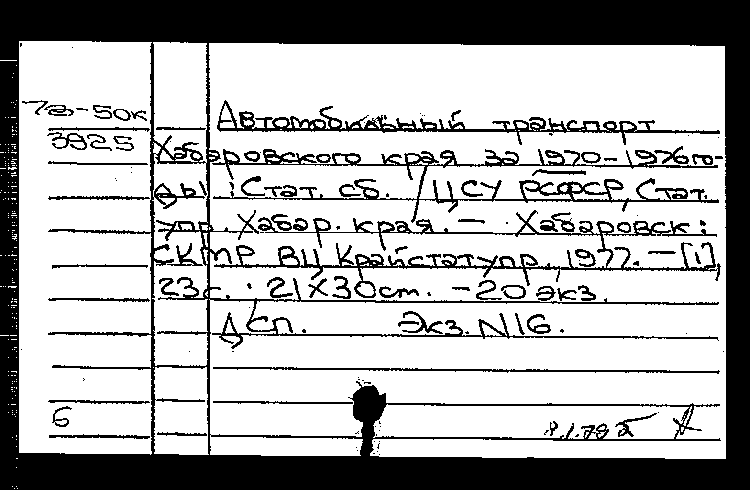 7а-50к
3925
Автомобильный транспорт
Хабаровского края за 1970-1976 го-
ды : Стат. сб. / ЦСУ РСФСР, Стат.
упр. Хабар. края. — Хабаровск :
СКМР ВЦ Крайстатупр., 1977. — [1],
23с. ; 21X30cm. - 20 экз.
Дсп. Экз. N16.
б